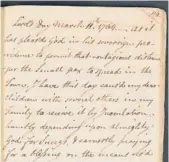 Lord's Day March 11th 1764 ... As it
has pleased God in his sovereign pro
vidence to permit that contagious distem
per the Small pox to spread in the
Town, I have this day caused my dear
children with several others in my
Family to receive it by Inoculation
humbly depending upon Almighty
God for Success, & earnestly praying
for a blessing on the means used